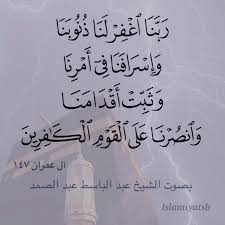 رَبَّنَا ٱغْفِرْ لَنَا ذُنُوبَنَا
وَإِسْرَافَنَا فِىٓ أَمْرِنَا
وَثَبِّتْ أَقْدَامَنَا
وَٱنصُرْنَا عَلَى ٱلْقَوْمِ ٱلْكَٰفِرِينَ
آل عمران ١٤٧
بصوت الشيخ عبد الباسط عبد الصمد
Islamiyatsb